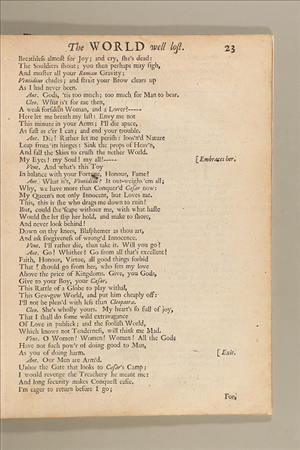 The WORLD well lost. 23
Breathless almost for Joy; and cry, she's dead:
The Souldiers shout; you then perhaps may sigh,
And muster all your Roman Gravity;
Ventidius chides; and strait your Brow clears up
As I had never been.
Ant. Gods, 'tis too much; too much for Man to bear.
Cleo. What is't for me then,
A weak forsaken Woman, and a Lover?-----
Here let me breath my last: Envy me not
This minute in your Arms; I'll die apace,
As fast as e'er I can; and end your trouble.
Ant. Die! Rather let me perish: loos'n'd Nature
Leap from its hinges: Sink the props of Heav'n,
And fall the Skies to crush the nether World.
My Eyes! my Soul! my all!----- [Embraces her.
Vent. And what's this Toy
In balance with your Fortune, Honour, Fame?
Ant. What is't, Ventidius? It out-weighs 'em all;
Why, we have more than Conquer'd Cæsar now:
My Queen's not only Innocent, but Loves me.
This, this is she who drags me down to ruin!
But, could she 'scape without me, with what haste
Would she let slip her hold, and make to shore,
And never look behind!
Down on thy knees, Blasphemer as thou art,
And ask forgiveness of wrong'd Innocence.
Vent. I'll rather die, than take it. Will you go?
Ant. Go! Whither? Go from all that's excellent!
Faith, Honour, Virtue, all good things forbid
That I should go from her, who sets my love
Above the price of Kingdoms. Give, you Gods,
Give to your Boy, your Cæsar,
This Rattle of a Globe to play withal,
This Gew-gaw World, and put him cheaply off:
I'll not be pleas'd with less than Cleopatra.
Cleo. She's wholly yours. My heart's so full of joy,
That I shall do some wild extravagance
Of Love in publick; and the foolish World,
Which knows not Tenderness, will think me Mad.
Vent. O Women! Women! Women! All the Gods
Have not such pow'r of doing good to Man,
As you of doing harm. [Exit.
Ant. Our Men are Arm'd.
Unbar the Gate that looks to Cæsar's Camp;
I would revenge the Treachery he meant me:
And long security makes Conquest easie.
I'm eager to return before I go;
For,